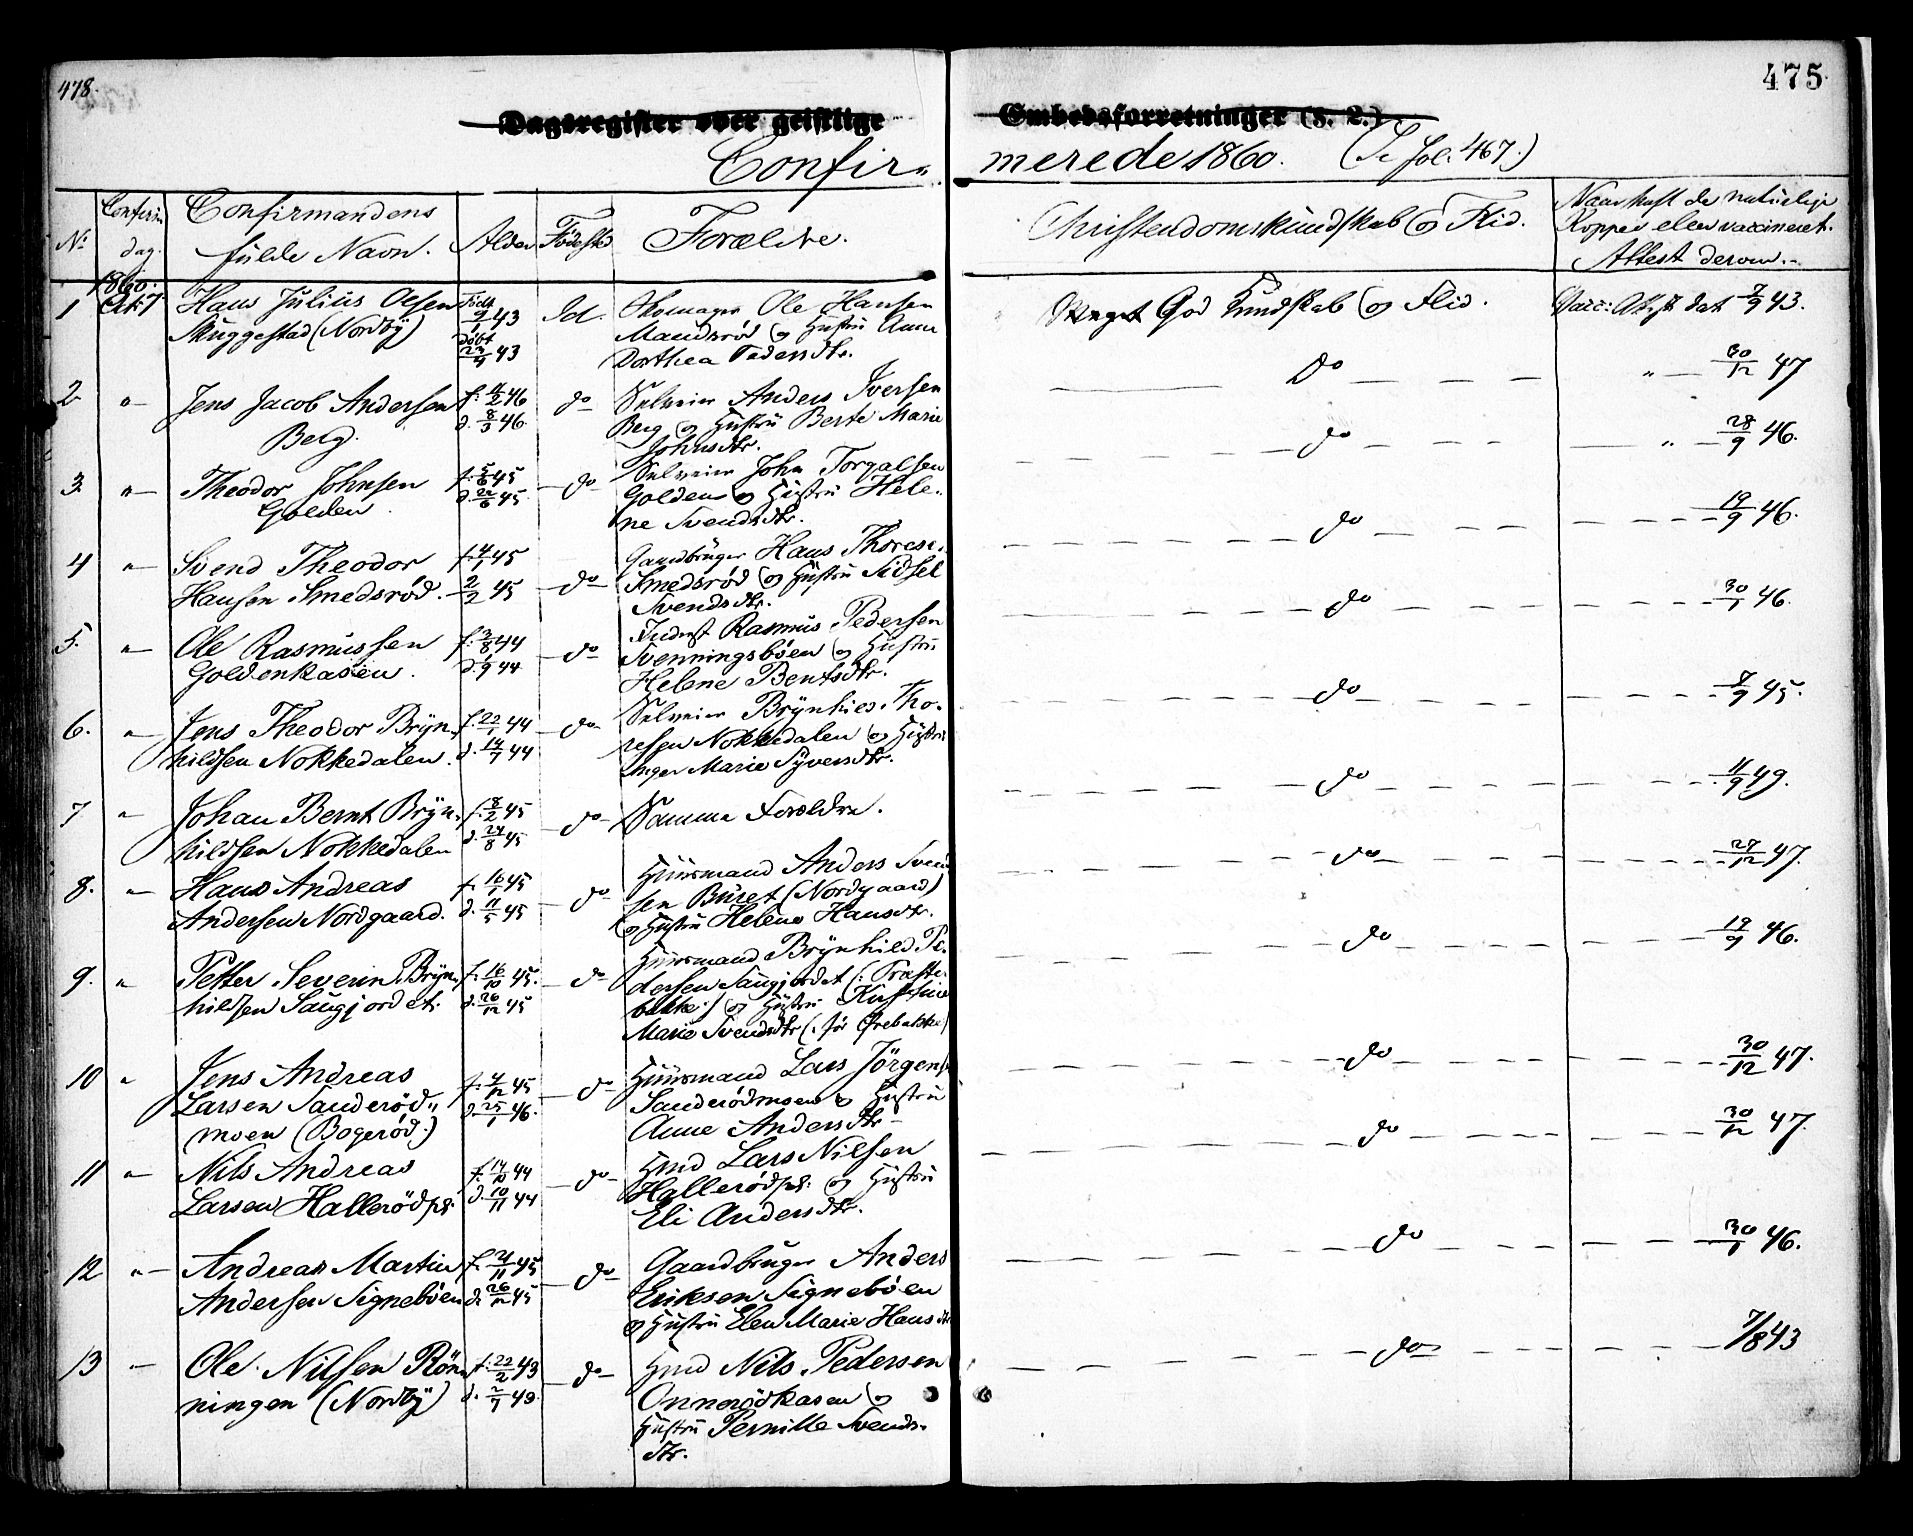 478.
475
Dagsregister over geistlige Embedsforretninger (S. 2.)
Confirmerede 1860. (Se fol. 467.)
No
Confirm. dag.
Confirmandens fulde Navn.
Alder
Födested
Forældre.
Christendomskundskab og Flid.
Naar havt de naturlige
Kopper eller vaccineret.
Attest derom.
1860.
1 Oct. 7 Hans Julius Olsen
Skuggestad (Nordby)
Födt 9/1 43
Döbt 23/4 43
Id.
Skomager Ole Hansen
Mandsröd og Hustru Anne
Dorthea Pedersdtr.
Meget God Kundskab og Flid.
Vacc: Attest dat 7/9 43.
2 " Jens Jacob Andersen
Berg.
f. 11/2 46
d. 8/3 46
do
Selveier Anders Iversen
Berg og Hustru Berte Marie
Johnsdtr.
Do
" 30/12 47
3 " Theodor Johnsen
Golden.
f. 5/6 45
d. 22/6 45
do
Selveier John Torgalsen
Golden og Hustru Hele-
ne Svendsdtr.
do
" 28/9 46.
4 " Svend Theodor
Hansen Smedsröd.
f. 4/1 45
2/2 45
do
Gaardbruger Hans Thorese
Smedsröd og Hustru Sidsel
Svendsdtr.
do
19/9 46.
5. " Ole Rasmussen
Goldenkasen.
f. 3/8 44
d. 1/9 44
do
Inderst Rasmus Pedersen
Svenningsböen og Hustru
Helene Bentsdtr.
do
30/1 46.
6. " Jens Theodor Bryn-
hildsen Nokkedalen.
f. 22/1 44
d. 14/7 44
do
Selveier Brynhild Tho-
resen Nokkedalen og Hustru
Inger Marie Syversdtr.
do
8/9 45.
7 " Johan Bernt Bryn-
hildsen Nokkedalen
f. 8/2 45
d. 24/8 45
do
Samme Forældre.
do
11/9 49.
8. " Hans Andreas
Andersen Nordgaard.
f. 16/1 45
d. 11/5 45
do
Huusmand Anders Svend
sen Buret (Nordgaard)
og Hustru Helene Hansdtr.
do
28/12 47.
9. " Petter Severin Bryn-
hildsen Saugjordet.
f. 16/10 45.
d. 26/12 45
do
Huusmand Brynhild Pe-
dersen Saugjordet (:
bakke:) og Hustru
Marie Svendsdtr (
do
19/9 46.
10 " Jens Andreas
Larsen Sanderöd-
moen (Bogeröd.)
f. 4/12 45
d. 25/1 46.
do
Huusmand Lars Jörgens
Sanderödmoen og Hustru
Anne Andersdtr
do
30/12 47.
11 " Nils Andreas
Larsen Halleröd pl.
f. 14/10 44
d. 10/11 44
do
Hmd Lars Nilsen
Halleröd pl. og Hustru
Eli Andersdtr.
do
30/12 47.
12 " Andreas Martin
Andersen Signeböen
f. 21/11 45
d. 26/12 45
do
Gaardbruger Anders
Eriksen Signeböen
og Hustru Elen Marie Hansdtr
do
30/1 46.
13 " Ole Nilsen Rön-
ningen (Nordby)
f. 22/2 43
d. 2/7 43.
do
Hmd Nils Pedersen
Onnerödkasen og
Hustru Pernille Svends-
dtr.
do
7/8 43